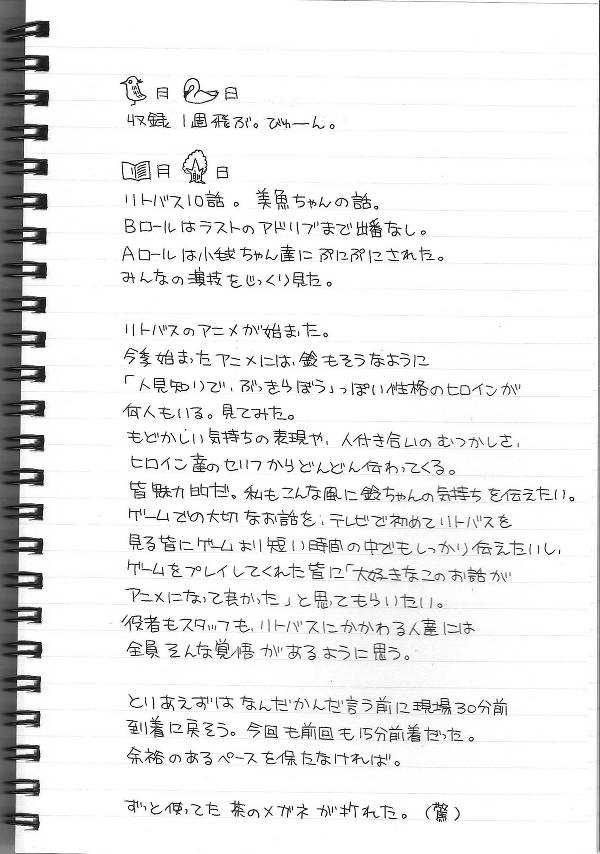 月 日
収録 1週飛ぶ。びゅーん。
月 日
リトバス10話。 美魚ちゃんの話。
Bロールはラストのアドリブまで出番なし。
Aロールは小毬ちゃん達にぷにぷにされた。
みんなの演技をじっくり見た。
リトバスのアニメが始まった。
今季始まったアニメには、鈴もそうなように
「人見知りで、ぶっきらぼう」っぽい性格のヒロインが
何人もいる。見てみた。
もどかしい気持ちの表現や、人付き合いのむつかしさ、
ヒロイン達のセリフからどんどん伝わってくる。
皆魅力的だ。私もこんな風に鈴ちゃんの気持ちを伝えたい。
ゲームでの大切なお話を、テレビで初めてリトバスを
見る皆にゲームより短い時間の中でもしっかり伝えたいし、
ゲームをプレイしてくれた皆に「大好きなこのお話が
アニメになって良かった」と思ってもらいたい。
役者もスタッフも、リトバスにかかわる人達には
全員そんな覚悟があるように思う。
とりあえずはなんだかんだ言う前に現場30分前
到着に戻そう。今回も前回も15分前着だった。
余裕のあるペースを保たなければ。
ずっと使ってた茶のメガネが折れた。(驚)